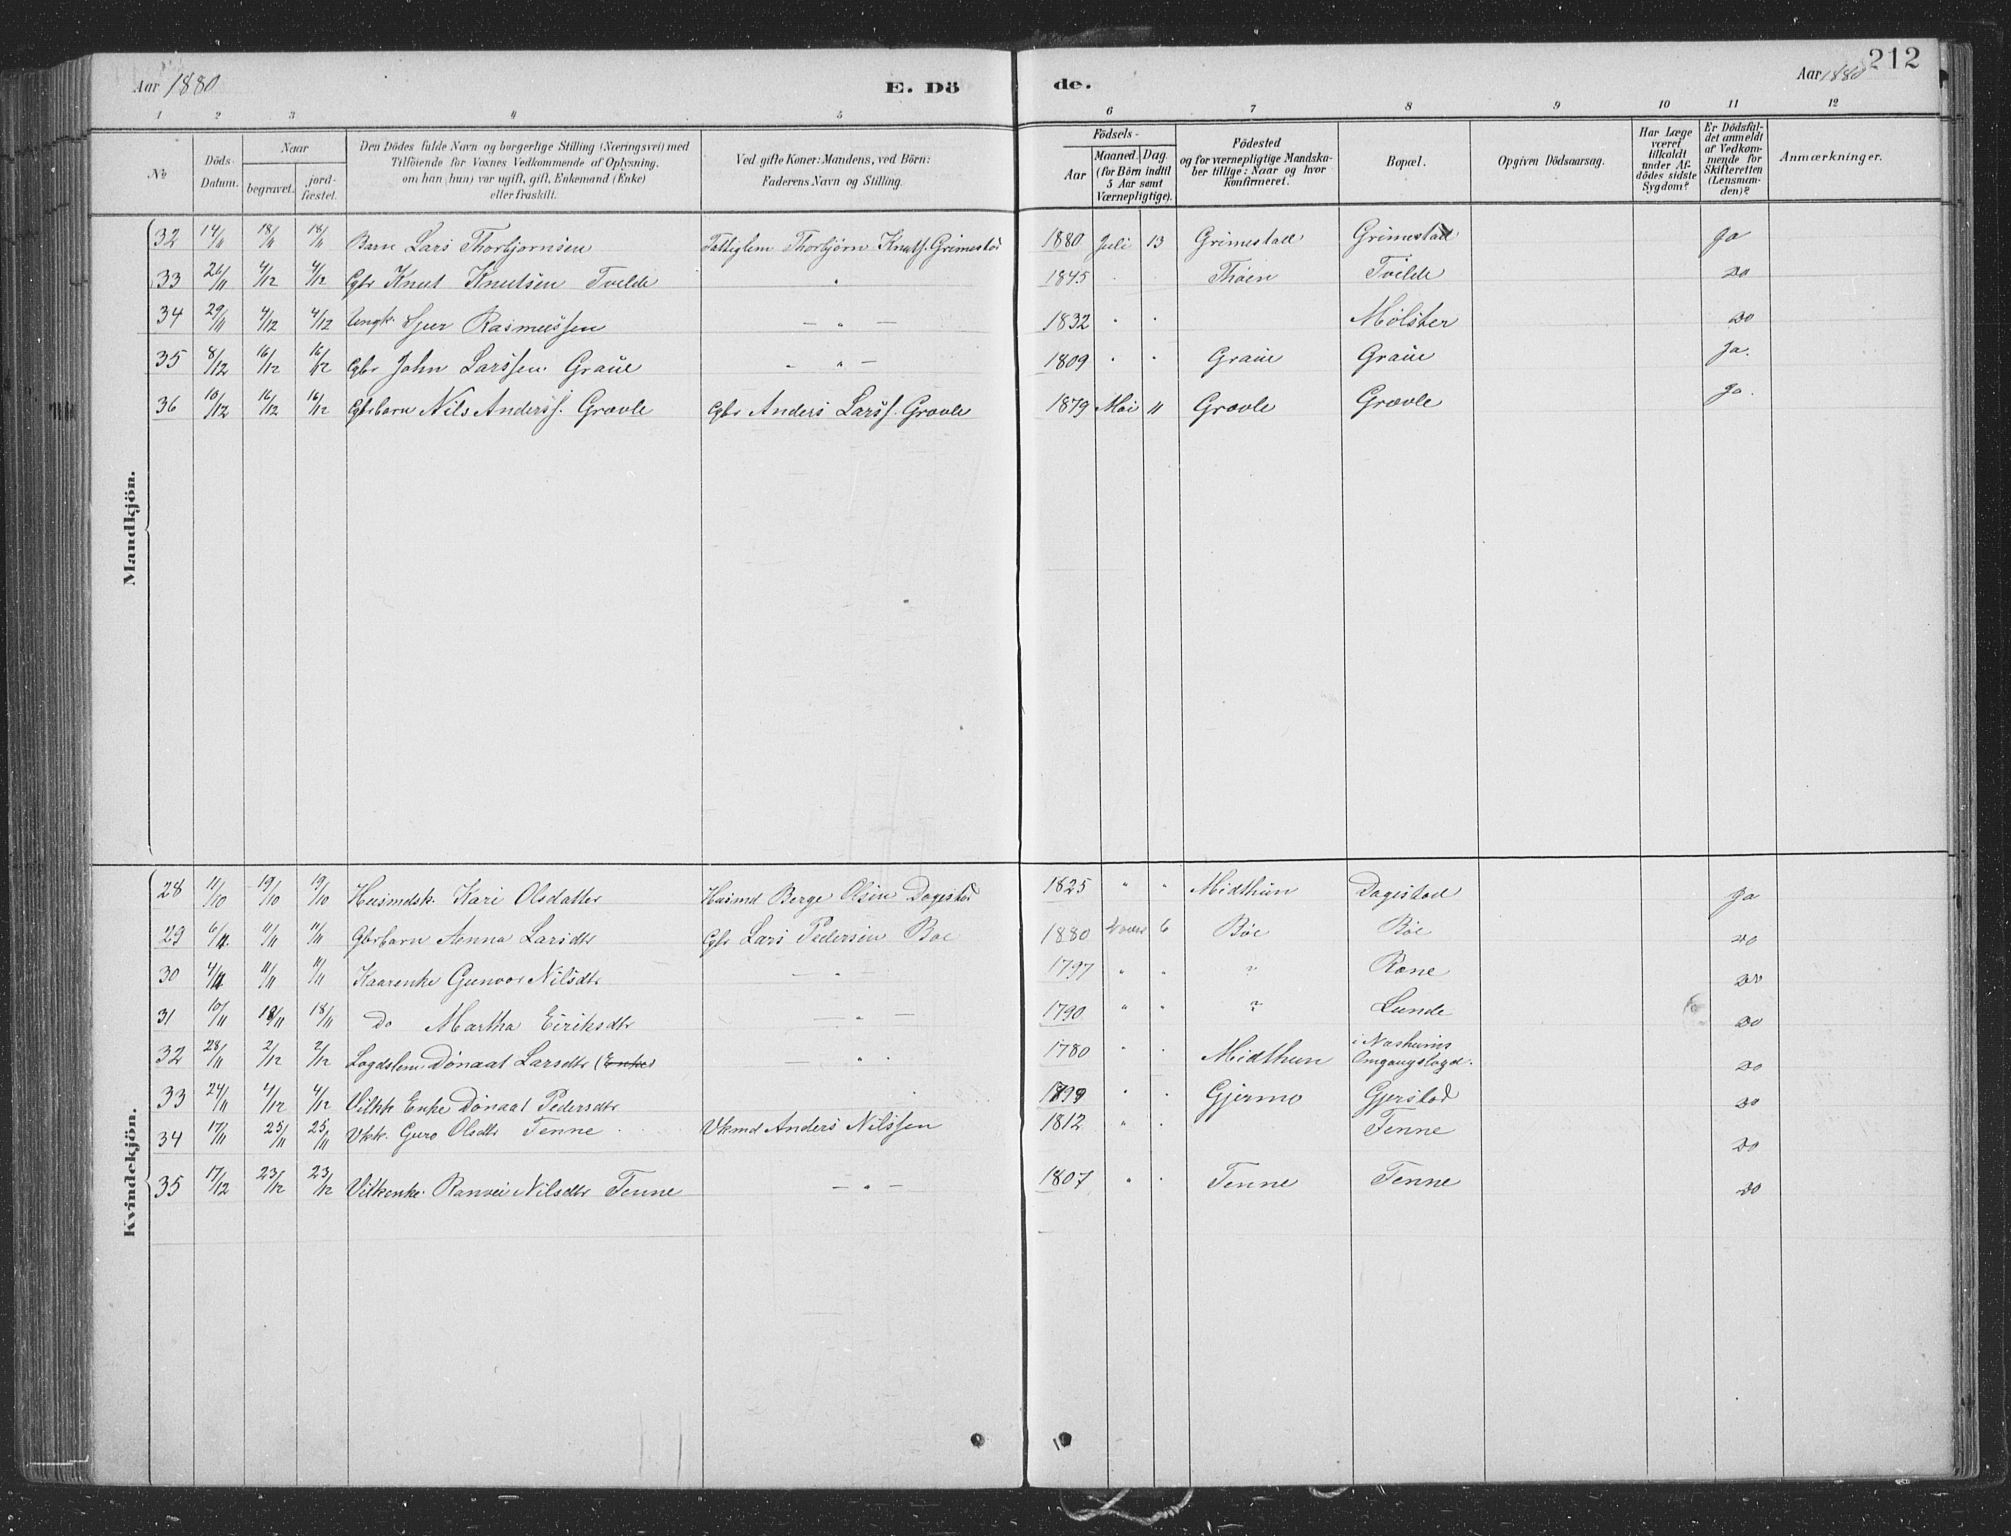 212
Aar 1880 E. Dö de. Aar 1880
1 2 3 4 5 6 7 8 9 10 11 12
No
Döds-Datum.
Naar
begravet.
jord-fæstet.
Den Dödes fulde Navn og borgerlige Stilling (Næringsvei) med
Tilföiende for Voxnes Vedkommende af Oplysning,
om han (hun) var ugift, gift, Enkemand (Enke)
eller fraskilt.
Ved gifte Koner: Mandens, ved Börn:
Faderens Navn og Stilling.
Födsels-
Aar
Maaned. Dag
(for Börn indtil
5 Aar samt
Værnepligtige).
Födested
og for værnepligtige Mandska-
ber tillige: Naar og hvor
konfirmeret.
Bopæl.
Opgiven Dödsaarsag.
Har Læge
været
tilkaldt
under Af-
dödes sidste
Sygdom?
Er Dödsfal-
det anmeldt
af Vedkom-
mende for
Skifteretten
(Lensman-
den)?
Anmærkninger.
Mandkjön.
32 14/11 18/11 18/11 Barn Lars Thorbjornsen Fattiglem Thorbjørn Knuts. Grimestad 1880 Juli 13 Grimestad Grimestad Ja
33 26/11 4/12 4/12 Gbr Knut Knutsen Tvilde " 1845 Thöen Tvilde Do
34 29/11 4/12 4/12 Ungk. Sjur Rasmussen - " - 1832 Mölster Do
35 8/12 16/12 16/12 Gbr John Larssen Graue - " - 1809 Graue Graue Ja.
36 10/12 16/12 16/12 Gbrbarn Nils Anderss. Grovle Gbr Anders Larss. Grovle 1879 Mai 11 Grovle Grovle Ja.
Kvindekjön.
28 11/10 19/10 19/10 Husmdsk. Kari Olsdatter Husmd Berge Olsen Dagestad 1825 " " Midthun Dagestad Ja
29 6/11 11/11 11/11 Gbrbarn Anna Larsdtr Gbr Lars Pedersen Böe 1880 6 Böe Böe Do
30 4/11 11/11 11/11 Kaarenke Gunvor Nilsdtr - " - 1797 " " ? Rone Do
31 10/11 18/11 18/11 Do Martha Eiriksdtr - " - 1790 " " ? Lunde Do
32 28/11 2/12 2/12 Lægdslem Dønaat Larsdtr (Enke) - " 1780 " Midthun i Nasheims Omgangslægd. Do
33 24/11 4/12 4/12 Vilkk Enke Dønaat Pedersdtr 1799 " Gjermo Gjerstad Do
34 17/11 25/11 25/11 Vkk. Guro Olsdtr Tenne Vkmd Anders Nilssen 1812 " Tenne Do
35 17/12 23/12 23/12 Vilkenke. Ranvei Nilsdtr Tenne - " - 1807 " Tenne Tenne Do